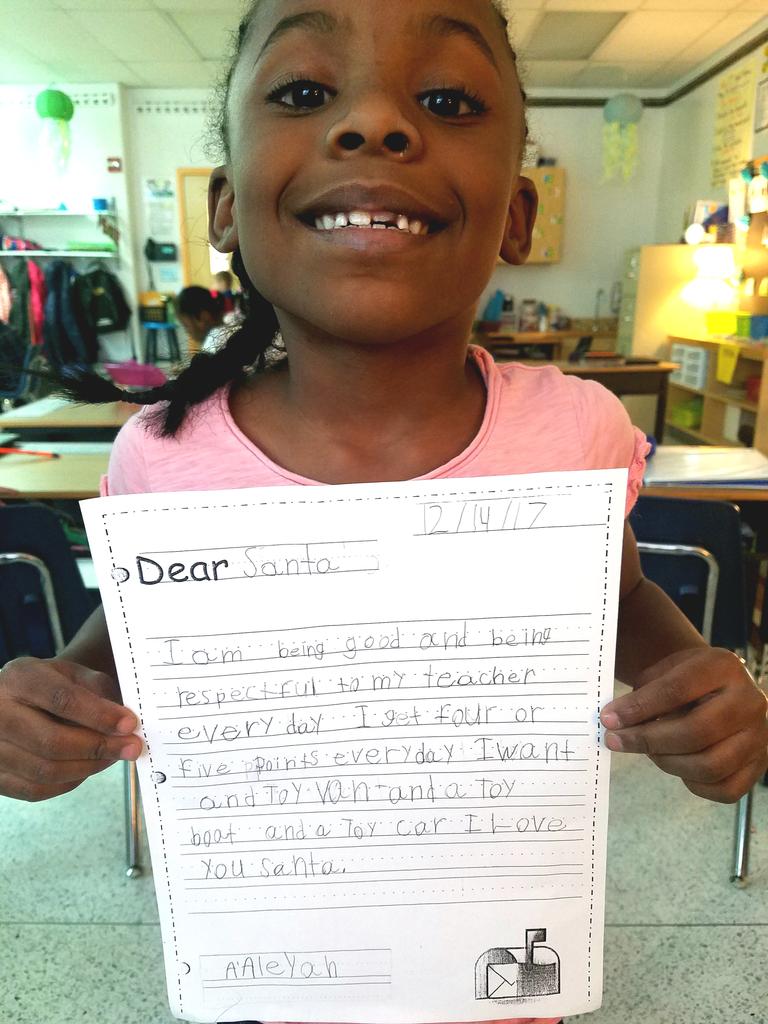 12/14/17
Dear Santa
I am being good and being
respectful to my teacher
every day I get four or
five points everyday I want
and toy van and a toy
boat and a toy car I Love
you santa.
A'Aleyah